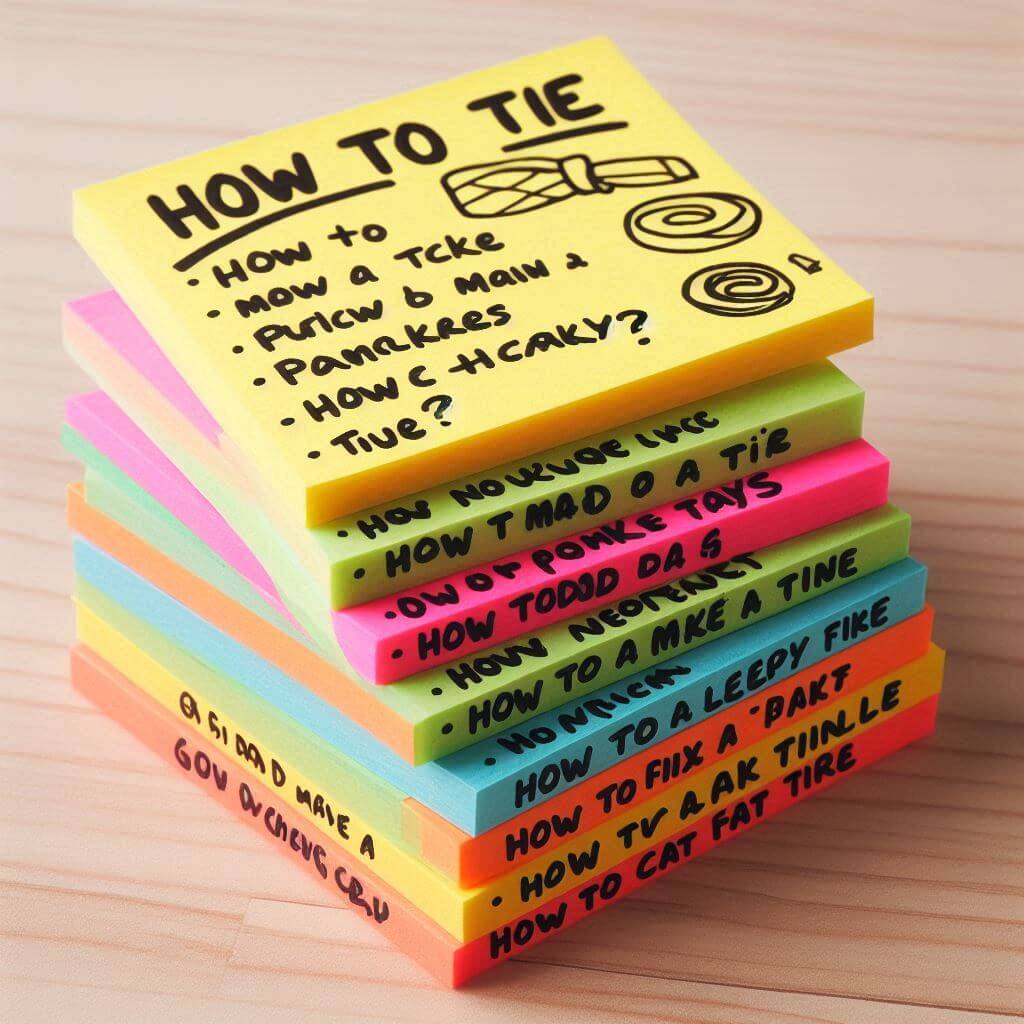 HOW TO TIE
• HOW to
• MOW a TCKE
• PURICW b MaIN a
• PaNRKKRES
• HOW C +HCAKY?
• TIUe?
• HOW NOUKUOE LWCC
• HOW T MAD O A TIR
• OW OF POMKE TAYS
• HOW TODJD DA S
• HOW NEOFENET
• HOW TO A MKE A TINE
• HONPICN
HOW TO A LEEPY FIKE
HOW TO FIIX A "PAKT
• HOW TV A AK TIINLLE
HOW TO CAT FAT TIRE
MAVE A
GOV